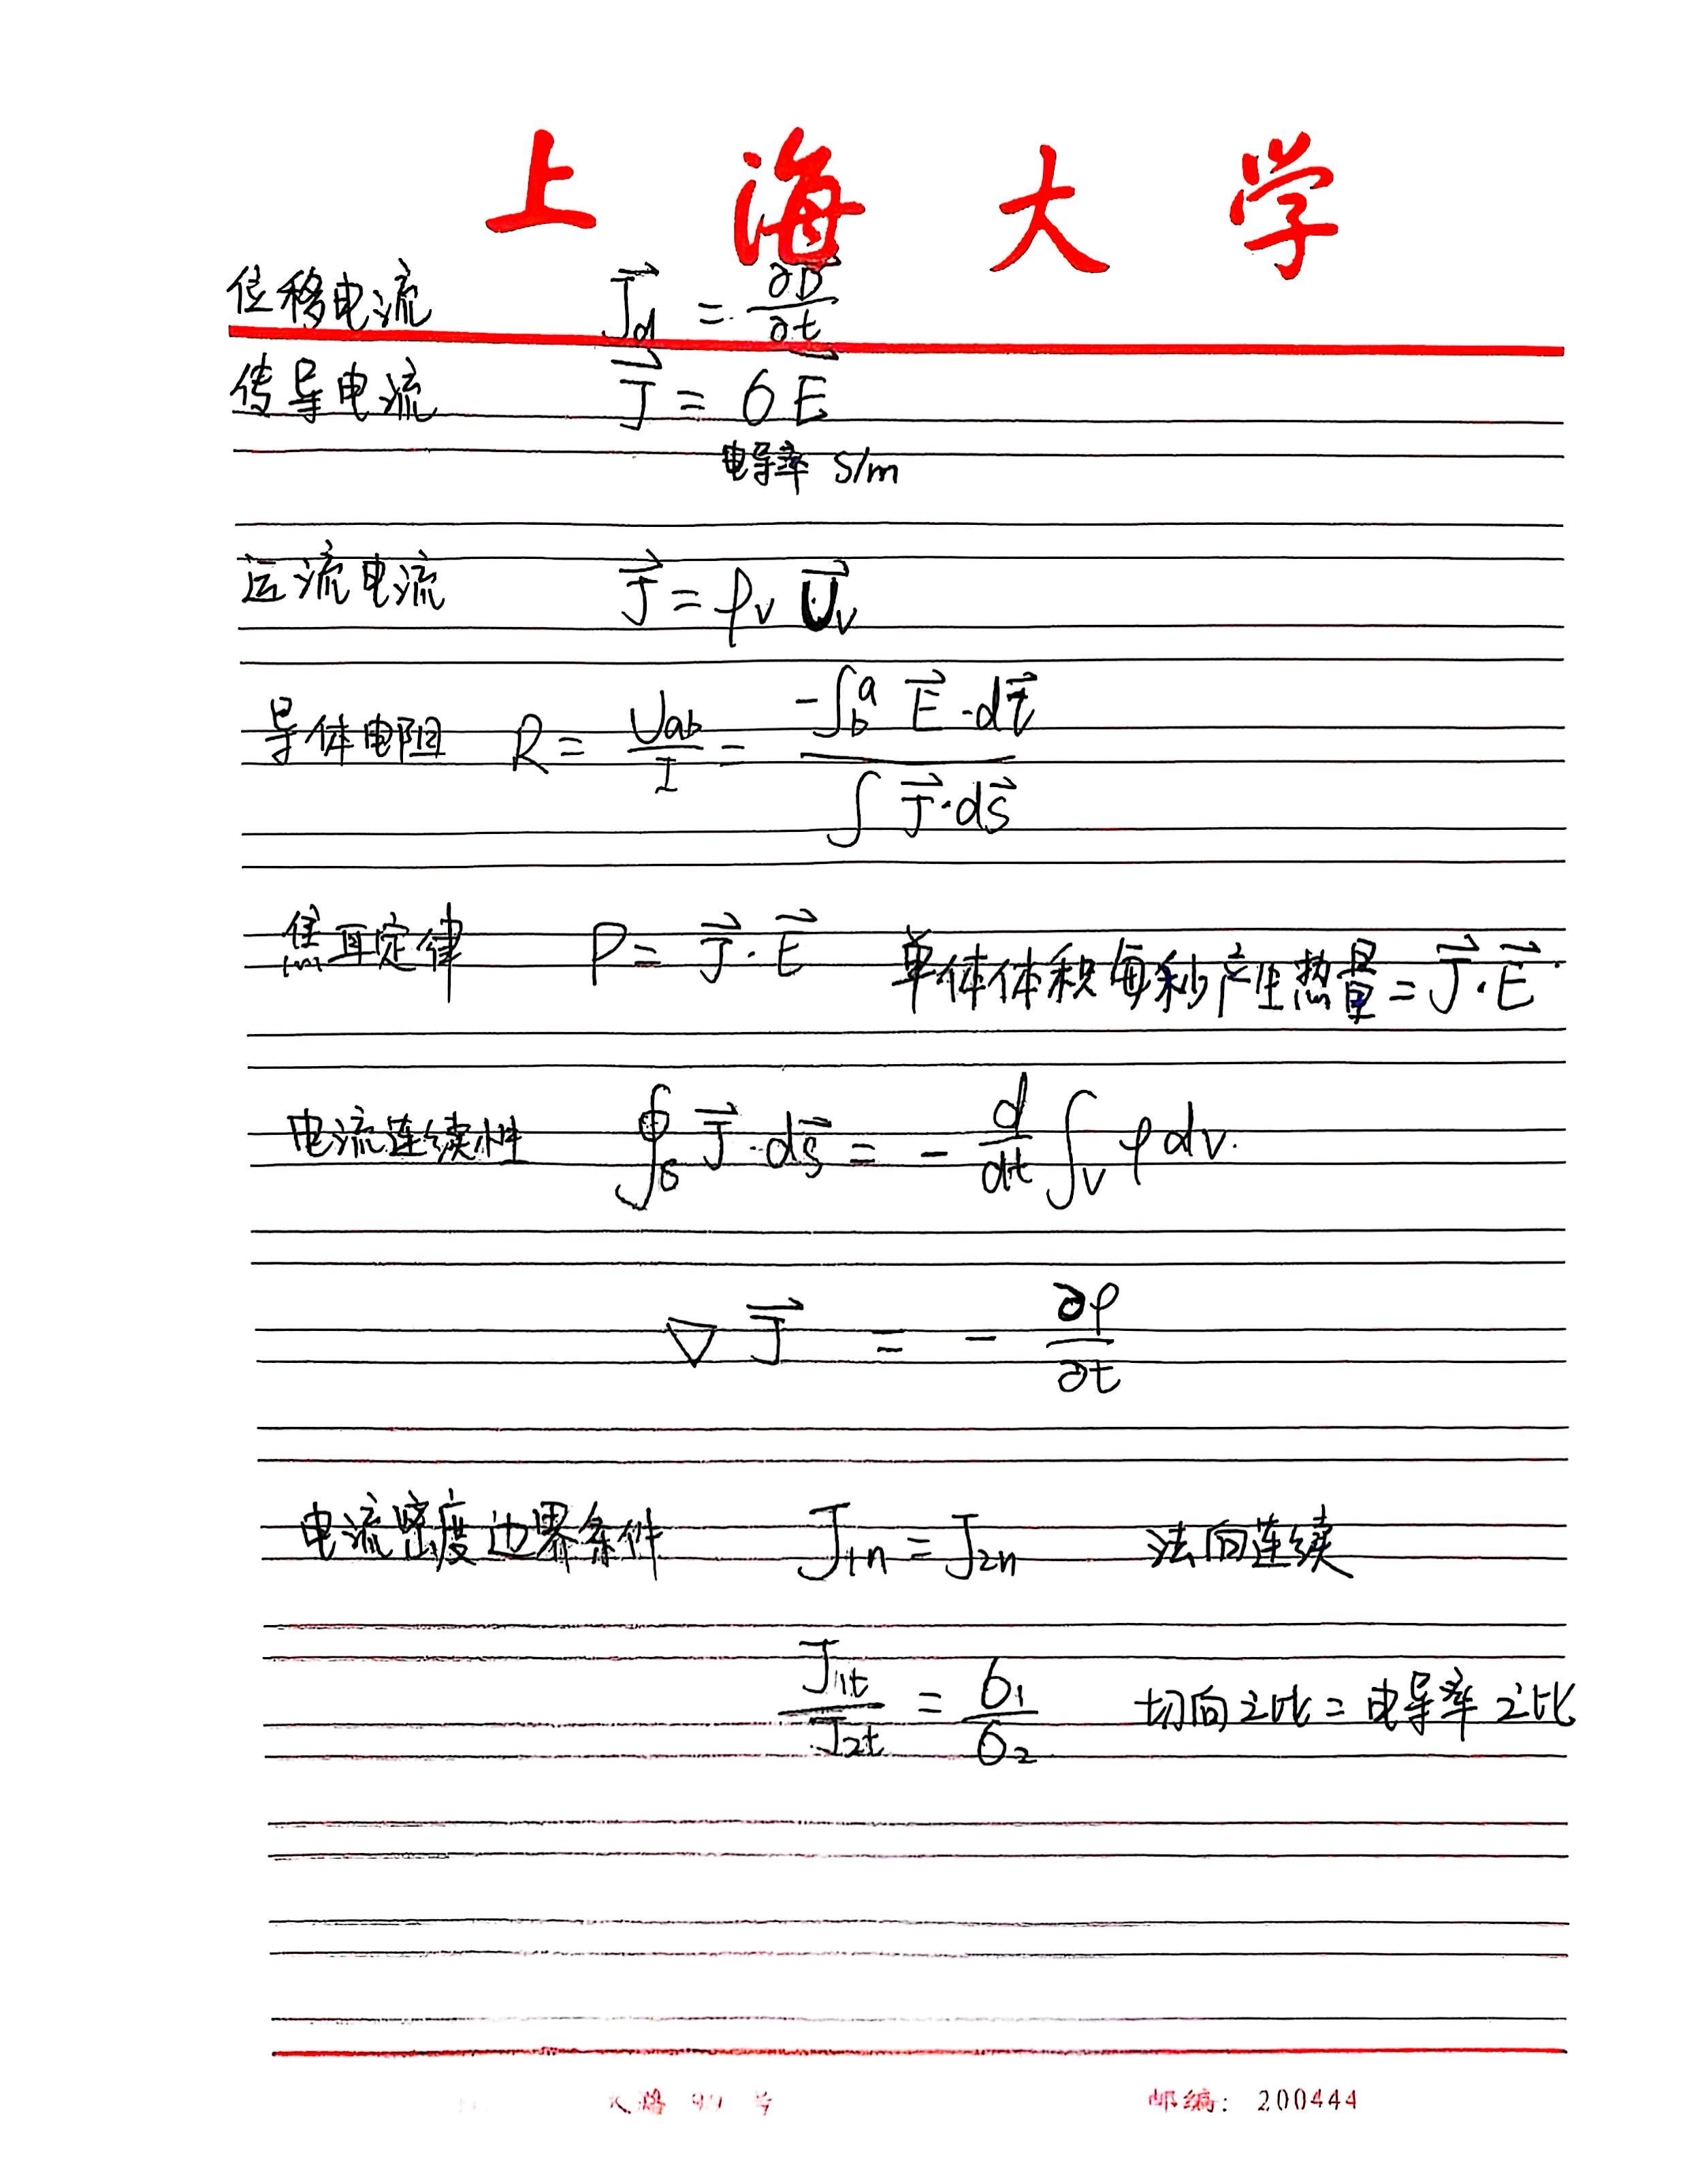 上海大学
位移电流 J⃗d = ∂D⃗/∂t
传导电流 J⃗ = σE⃗
电导率 S/m
运流电流 J⃗ = ρv U⃗v
导体电阻 R = Uab/I = -∫ba E⃗·dl⃗ / ∫J⃗·ds⃗
焦耳定律 P = J⃗·E⃗ 单体体积每秒产生热量 = J⃗·E⃗
电流连续性 ∮s J⃗·ds⃗ = - d/dt ∫v ρdv.
∇ J⃗ = - ∂ρ/∂t
电流密度边界条件 J1n = J2n 法向连续
J1t/J2t = σ1/σ2 切向之比 = 电导率之比
99号 邮编: 200444